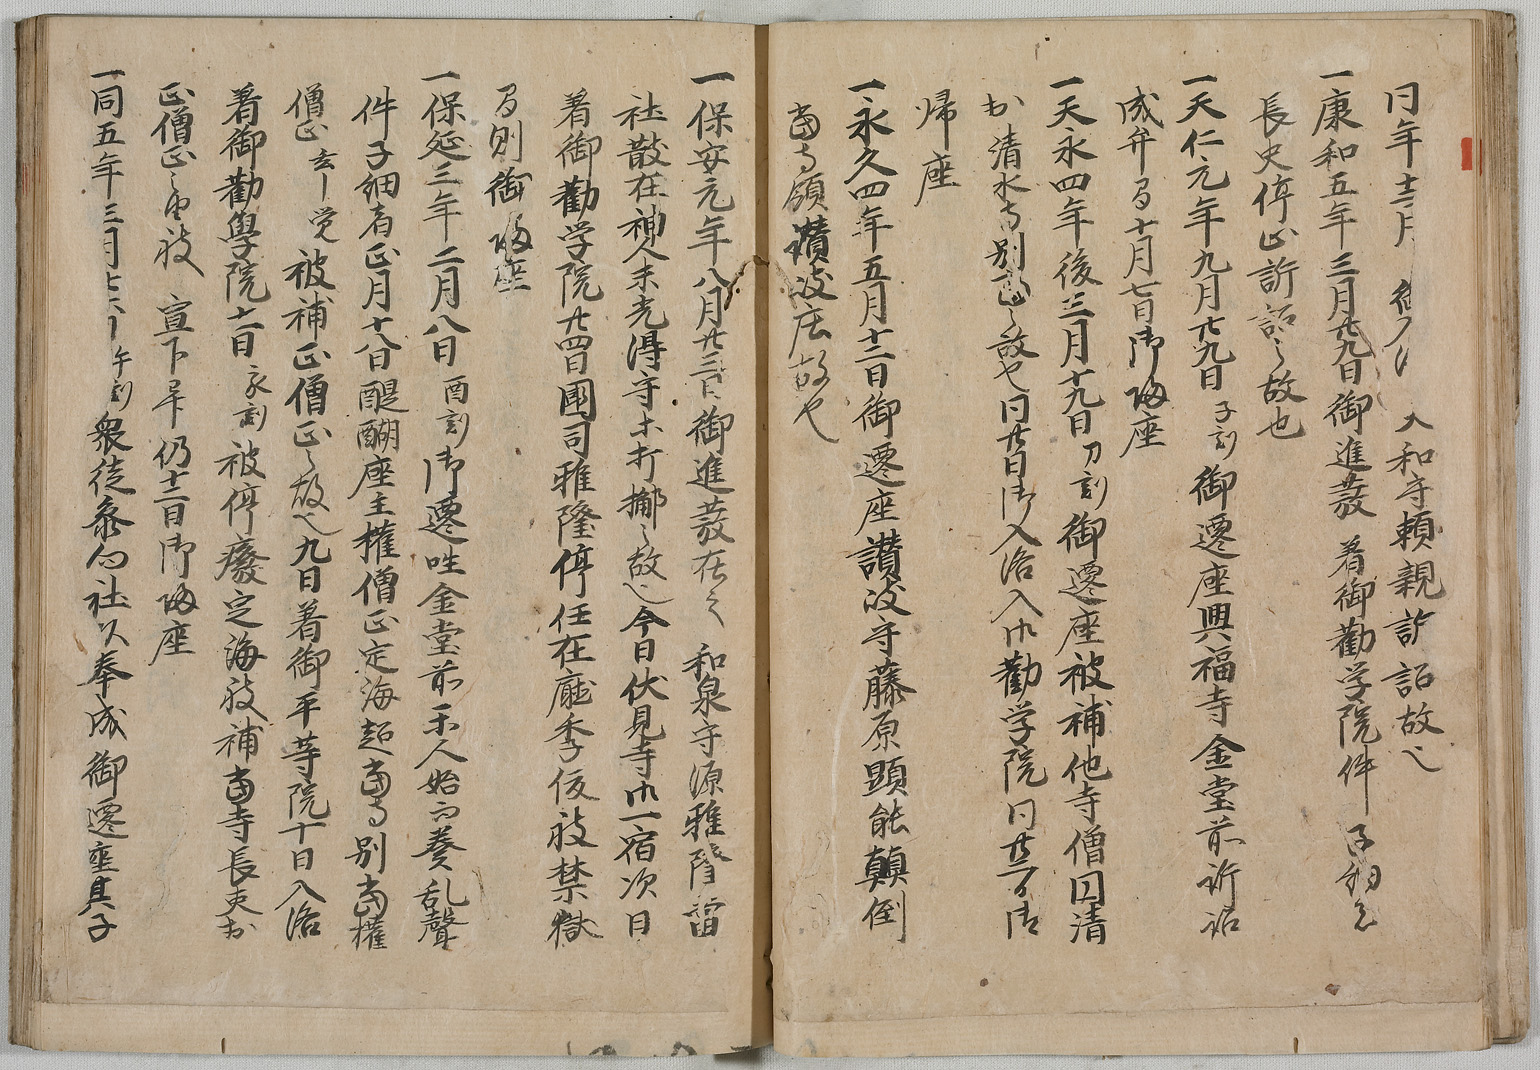 同年十二月 大和守頼親訴訟故也
一康和五年三月廿九日御進発着御勧学院件子細者
長吏停止訴訟之故也
一天仁元年九月廿九日子刻御遷座興福寺金堂前訴訟
成弁同十月七日御帰座
一天永四年後三月十九日刀刻御遷座被補他寺僧因清
於清水寺別當之故也同廿日御入洛入御勧学院同廿二日御
帰座
一永久四年五月十二日御遷座讃岐守藤原顕能顛倒
當寺領讃岐庄故也
一保安元年八月廿三日御進発在之 和泉守源雅隆當
社散在神人末光得守等打擲之故也今日伏見寺御一宿次日
着御勧学院廿四日国司雅隆停任在庁季仮被禁獄
即御帰座
一保延三年二月八日酉刻御遷坐金堂前楽人始而奏乱聲
件子細者正月十八日醍醐座主権僧正定海超當寺別當権
僧正玄覚被補正僧正之故也九日着御平等院十日入洛
着御勸學院十一日亥刻被停癈定海被補當寺長吏於
正僧正之由被 宣下畢仍十二日御帰座
一同五年三月廿六日午刻衆徒参向社头奉成御遷座其子